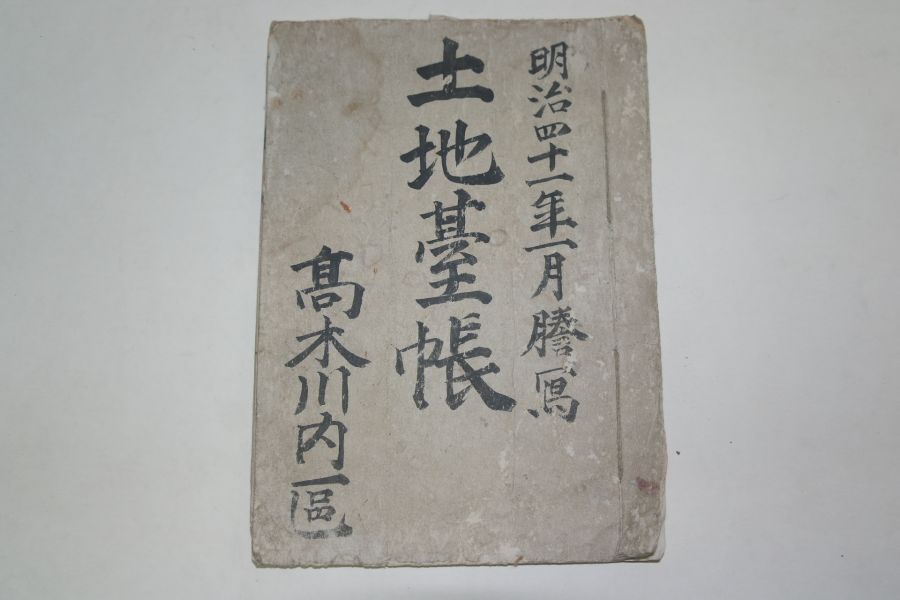 明治四十一年一月謄寫
土地臺帳
髙木川内一區